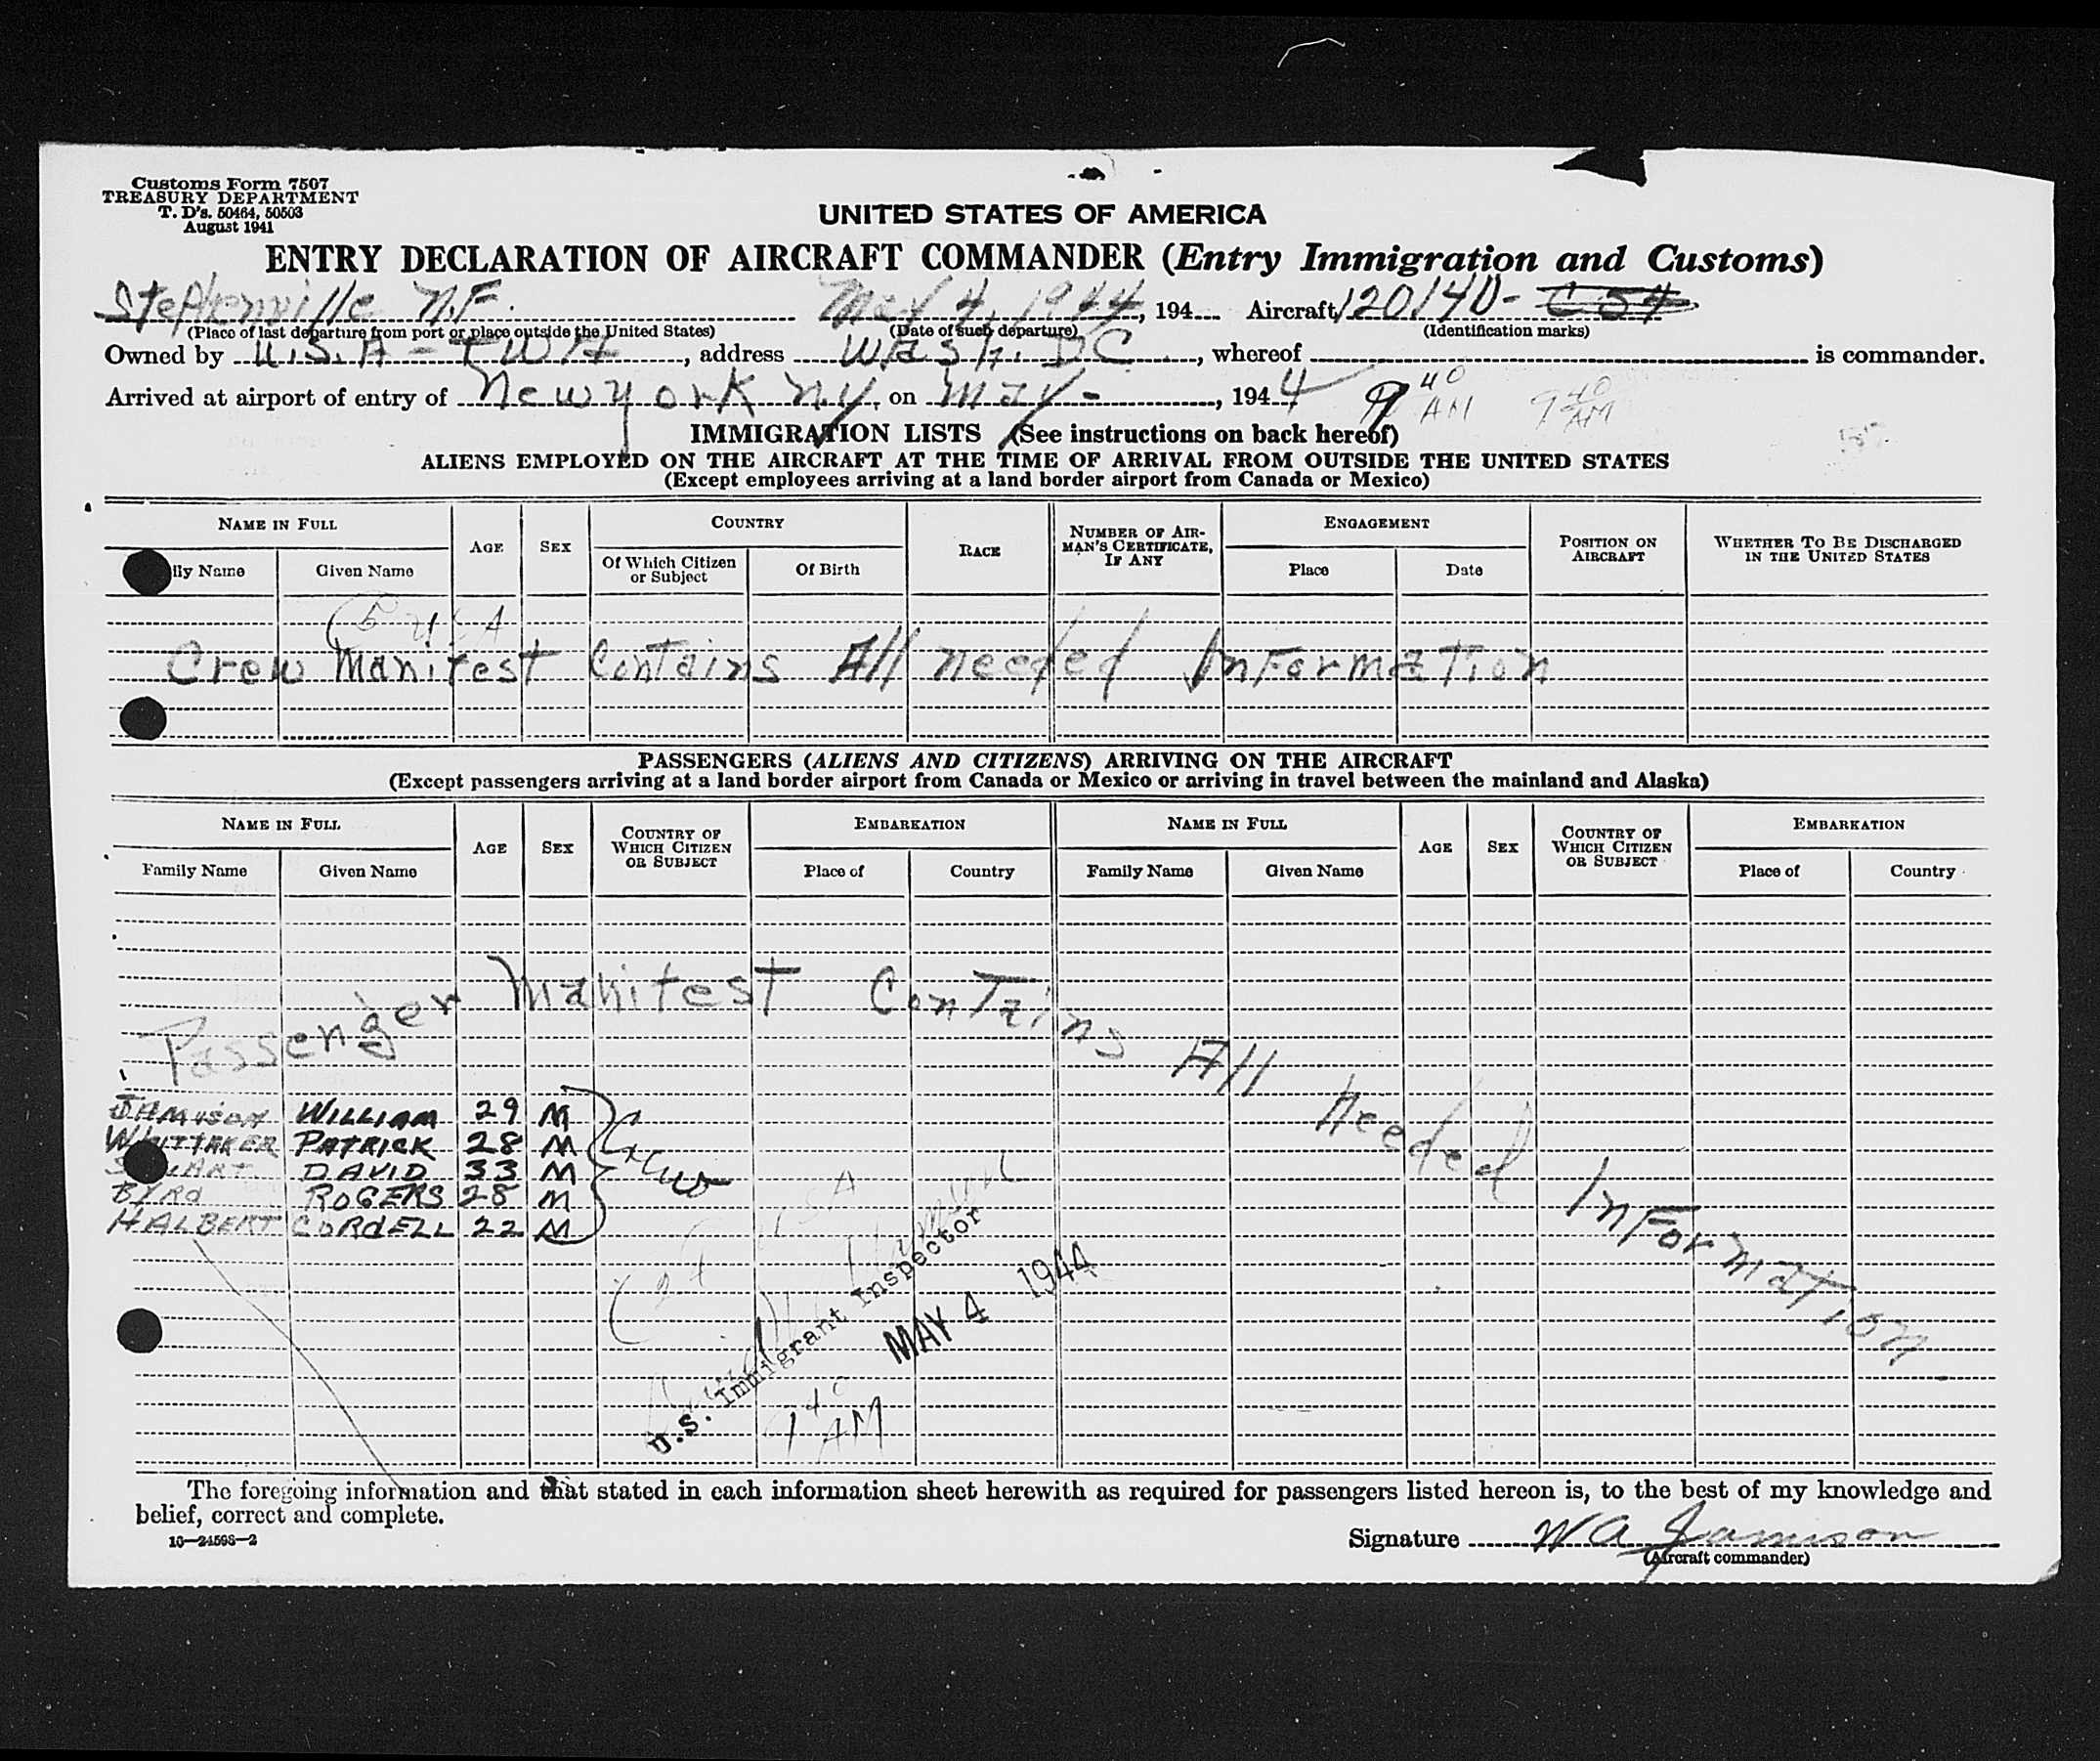 Customs Form 7507
TREASURY DEPARTMENT
T. D's. 50464, 50503
August 1941
UNITED STATES OF AMERICA
ENTRY DECLARATION OF AIRCRAFT COMMANDER (Entry Immigration and Customs)
Stephenville N.F. May 4, 1944, 194 Aircraft 120140- C54
(Place of last departure from port or place outside the United States) (Date of such departure) (Identification marks)
Owned by U.S.A - TWA, address Wash. DC, whereof is commander.
Arrived at airport of entry of New york N.y. on May -, 1944 9 40 AM 9 40 AM
IMMIGRATION LISTS (See instructions on back hereof)
ALIENS EMPLOYED ON THE AIRCRAFT AT THE TIME OF ARRIVAL FROM OUTSIDE THE UNITED STATES
(Except employees arriving at a land border airport from Canada or Mexico)
NAME IN FULL AGE SEX COUNTRY RACE NUMBER OF AIRMAN'S CERTIFICATE, IF ANY ENGAGEMENT POSITION ON AIRCRAFT WHETHER TO BE DISCHARGED IN THE UNITED STATES
ily Name Given Name Of Which Citizen or Subject Of Birth Place Date
(5 USA
Crew Manifest Contains All needed Information
PASSENGERS (ALIENS AND CITIZENS) ARRIVING ON THE AIRCRAFT
(Except passengers arriving at a land border airport from Canada or Mexico or arriving in travel between the mainland and Alaska)
NAME IN FULL AGE SEX COUNTRY OF WHICH CITIZEN OR SUBJECT EMBARKATION NAME IN FULL AGE SEX COUNTRY OF WHICH CITIZEN OR SUBJECT EMBARKATION
Family Name Given Name Place of Country Family Name Given Name Place of Country
Passenger Manifest Contains All Needed Information
JAMISON WILLIAM 29 M
WHITTAKER PATRICK 28 M
DAVID 33 M
BYRD ROGERS 28 M
HALBERT CORDELL 22 M
Crew
USA
U.S. Immigrant Inspector
MAY 4 1944
9 40 AM
The foregoing information and that stated in each information sheet herewith as required for passengers listed hereon is, to the best of my knowledge and
belief, correct and complete.
16—24598—2
Signature W A Jamison
(Aircraft commander)